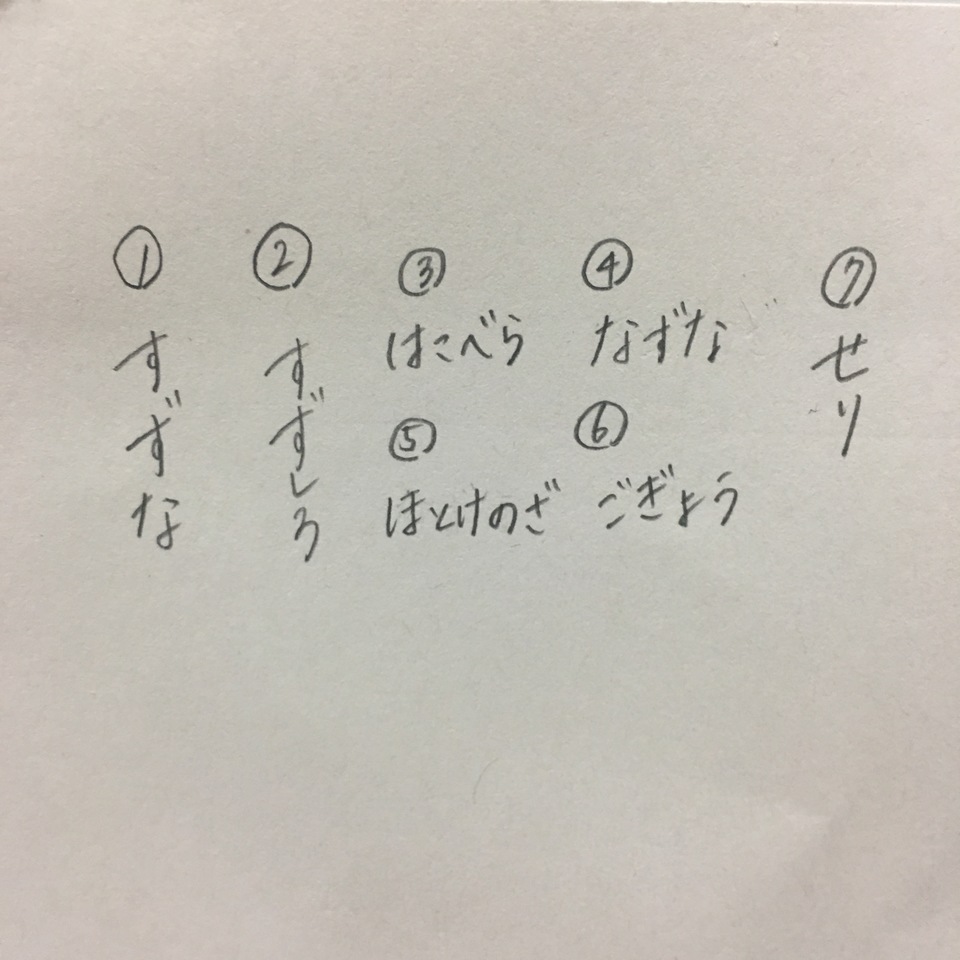 ①
すずな
②
すずしろ
③
はこべら
④
なずな
⑤
ほとけのざ
⑥
ごぎょう
⑦
せり